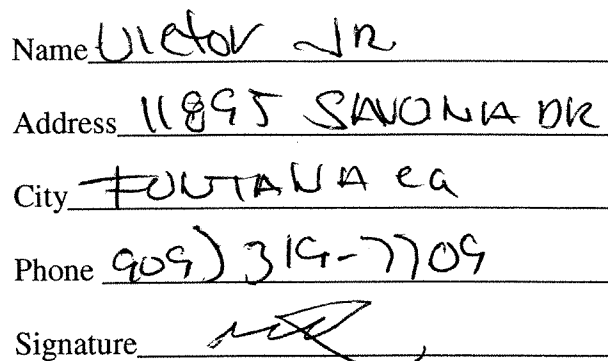 Name Victor JR
Address 11895 SAVONIA DR
City FONTANA ca
Phone 909) 319-7709
Signature